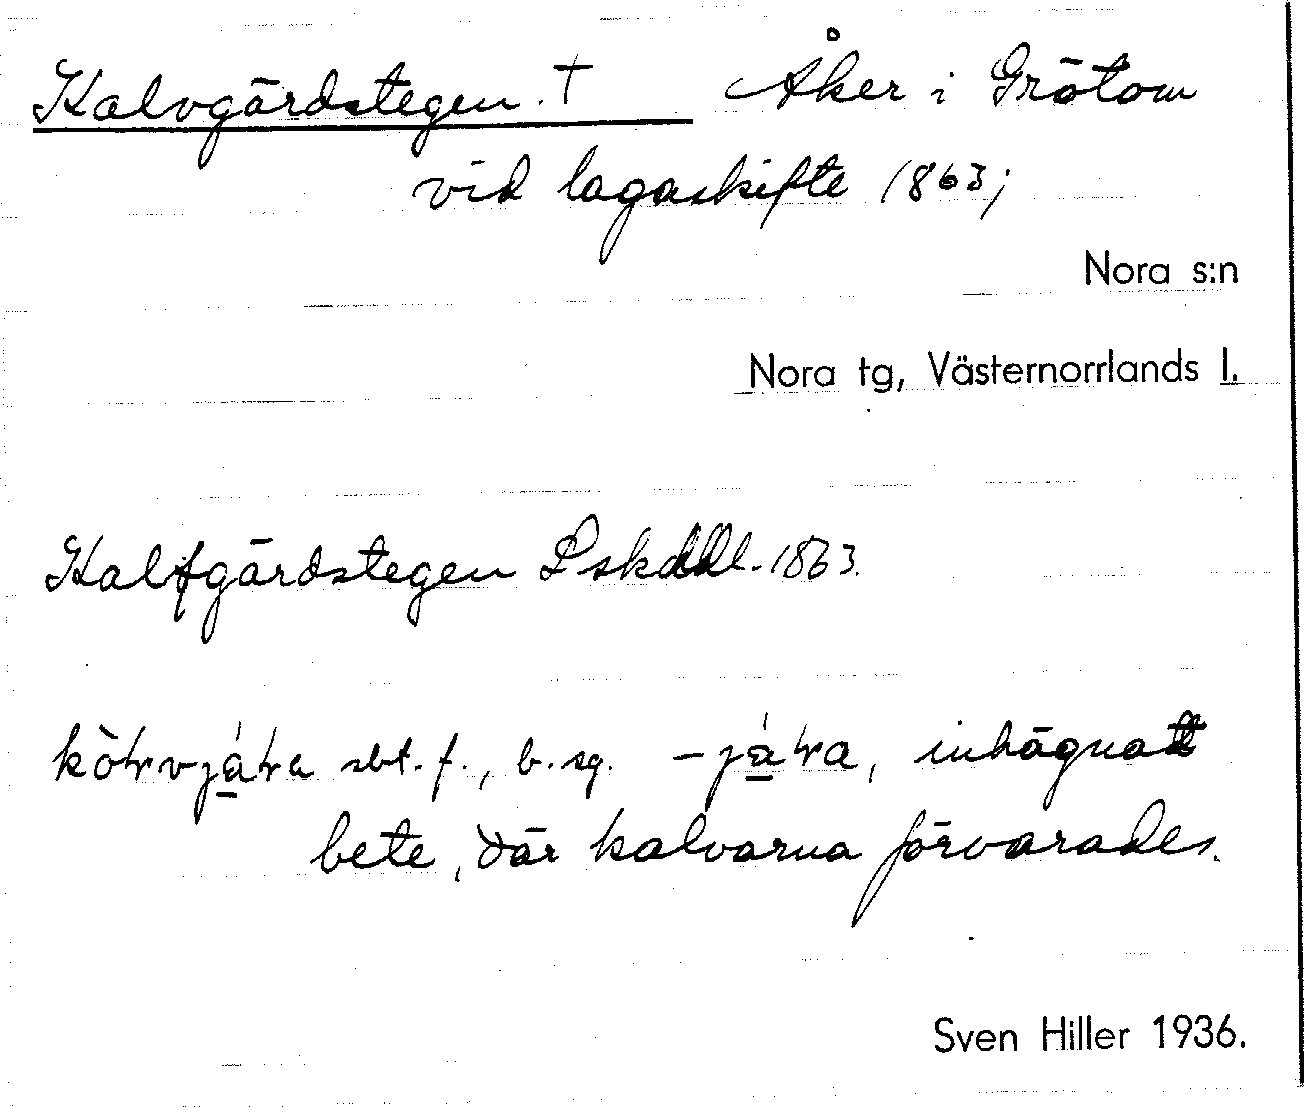 Kalvgärdstegen. † Åker i Grötom
vid lagaskifte 1863;
Nora s:n
Nora tg, Västernorrlands l.
Kalfgärdstegen Lskddl. 1863.
sbt. f., b. sg. inhägnatt
bete, där kalvarna förvarades.
Sven Hiller 1936.